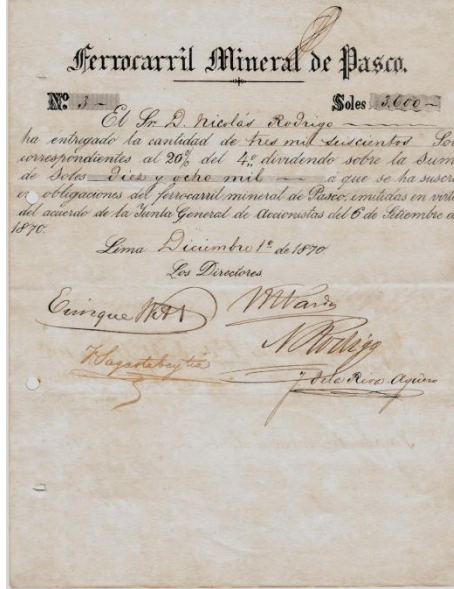 Ferrocarril Mineral de Pasco.
Nº 3 Soles 3,600
El Sr. D. Nicolás Rodrigo
ha entregado la cantidad de tres mil seiscientos Sol
correspondientes al 20% del 4º dividendo sobre la suma
de Soles diez y ocho mil á que se ha suscri
en obligaciones del ferrocarril mineral de Pasco, emitidas en virtu
del acuerdo de la Junta General de accionistas del 6 de Setiembre d
1870.
Lima Diciembre 1º de 1870
Los Directores
Enrique
N Rodrigo
J. de la Riva Agüero